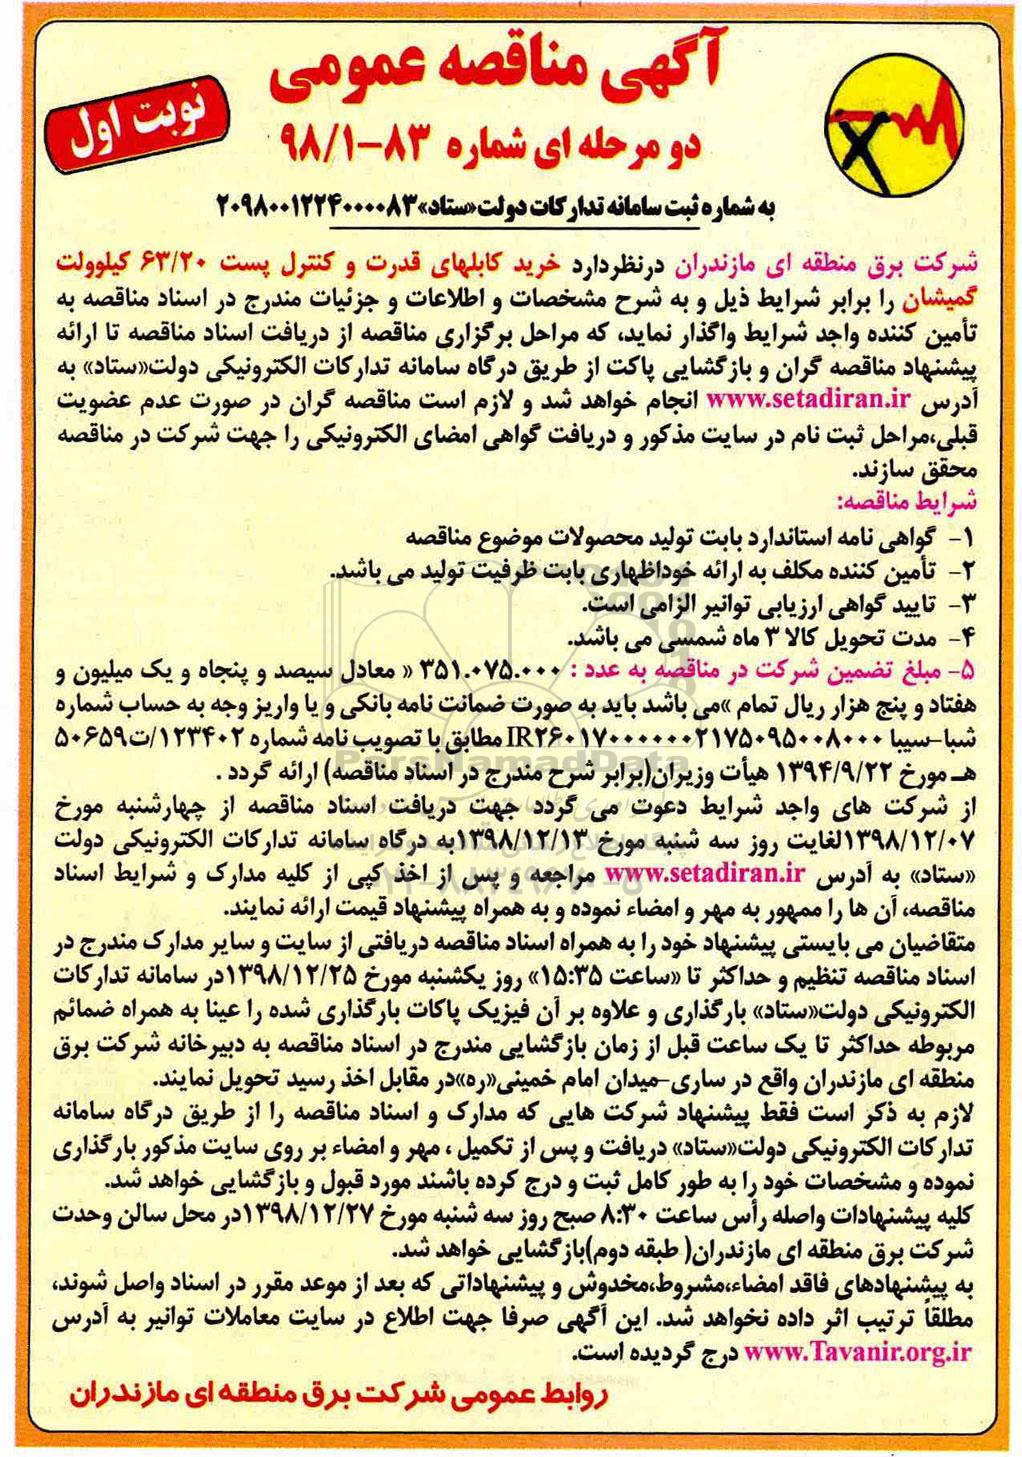 آگهی مناقصه عمومی
نوبت اول
دو مرحله ای شماره ۸۳-۹۸/۱
به شماره ثبت سامانه تدارکات دولت«ستاد»۲۰۹۸۰۰۱۲۲۴۰۰۰۰۸۳
شرکت برق منطقه ای مازندران درنظردارد خرید کابلهای قدرت و کنترل پست ۶۳/۲۰ کیلوولت
گمیشان را برابر شرایط ذیل و به شرح مشخصات و اطلاعات و جزئیات مندرج در اسناد مناقصه به
تأمین کننده واجد شرایط واگذار نماید، که مراحل برگزاری مناقصه از دریافت اسناد مناقصه تا ارائه
پیشنهاد مناقصه گران و بازگشایی پاکت از طریق درگاه سامانه تدارکات الکترونیکی دولت«ستاد» به
آدرس www.setadiran.ir انجام خواهد شد و لازم است مناقصه گران در صورت عدم عضویت
قبلی،مراحل ثبت نام در سایت مذکور و دریافت گواهی امضای الکترونیکی را جهت شرکت در مناقصه
محقق سازند.
شرایط مناقصه:
۱- گواهی نامه استاندارد بابت تولید محصولات موضوع مناقصه
۲- تأمین کننده مکلف به ارائه خوداظهاری بابت ظرفیت تولید می باشد.
۳- تایید گواهی ارزیابی توانیر الزامی است.
۴- مدت تحویل کالا ۳ ماه شمسی می باشد.
۵- مبلغ تضمین شرکت در مناقصه به عدد : ۳۵۱.۰۷۵.۰۰۰ « معادل سیصد و پنجاه و یک میلیون و
هفتاد و پنج هزار ریال تمام »می باشد باید به صورت ضمانت نامه بانکی و یا واریز وجه به حساب شماره
شبا-سیبا IR۲۶۰۱۷۰۰۰۰۰۰۰۲۱۷۵۰۹۵۰۰۸۰۰۰ مطابق با تصویب نامه شماره ۱۲۳۴۰۲/ت۵۰۶۵۹
هـ مورخ ۱۳۹۴/۹/۲۲ هیأت وزیران(برابر شرح مندرج در اسناد مناقصه) ارائه گردد .
از شرکت های واجد شرایط دعوت می گردد جهت دریافت اسناد مناقصه از چهارشنبه مورخ
۱۳۹۸/۱۲/۰۷لغایت روز سه شنبه مورخ ۱۳۹۸/۱۲/۱۳به درگاه سامانه تدارکات الکترونیکی دولت
«ستاد» به آدرس www.setadiran.ir مراجعه و پس از اخذ کپی از کلیه مدارک و شرایط اسناد
مناقصه، آن ها را ممهور به مهر و امضاء نموده و به همراه پیشنهاد قیمت ارائه نمایند.
متقاضیان می بایستی پیشنهاد خود را به همراه اسناد مناقصه دریافتی از سایت و سایر مدارک مندرج در
اسناد مناقصه تنظیم و حداکثر تا «ساعت ۱۵:۳۵» روز یکشنبه مورخ ۱۳۹۸/۱۲/۲۵در سامانه تدارکات
الکترونیکی دولت«ستاد» بارگذاری و علاوه بر آن فیزیک پاکات بارگذاری شده را عینا به همراه ضمائم
مربوطه حداکثر تا یک ساعت قبل از زمان بازگشایی مندرج در اسناد مناقصه به دبیرخانه شرکت برق
منطقه ای مازندران واقع در ساری-میدان امام خمینی«ره»در مقابل اخذ رسید تحویل نمایند.
لازم به ذکر است فقط پیشنهاد شرکت هایی که مدارک و اسناد مناقصه را از طریق درگاه سامانه
تدارکات الکترونیکی دولت«ستاد» دریافت و پس از تکمیل ، مهر و امضاء بر روی سایت مذکور بارگذاری
نموده و مشخصات خود را به طور کامل ثبت و درج کرده باشند مورد قبول و بازگشایی خواهد شد.
کلیه پیشنهادات واصله رأس ساعت ۸:۳۰ صبح روز سه شنبه مورخ ۱۳۹۸/۱۲/۲۷در محل سالن وحدت
شرکت برق منطقه ای مازندران( طبقه دوم)بازگشایی خواهد شد.
به پیشنهادهای فاقد امضاء،مشروط،مخدوش و پیشنهاداتی که بعد از موعد مقرر در اسناد واصل شوند،
مطلقاً ترتیب اثر داده نخواهد شد. این آگهی صرفا جهت اطلاع در سایت معاملات توانیر به آدرس
www.Tavanir.org.ir درج گردیده است.
روابط عمومی شرکت برق منطقه ای مازندران
ParsNamadData